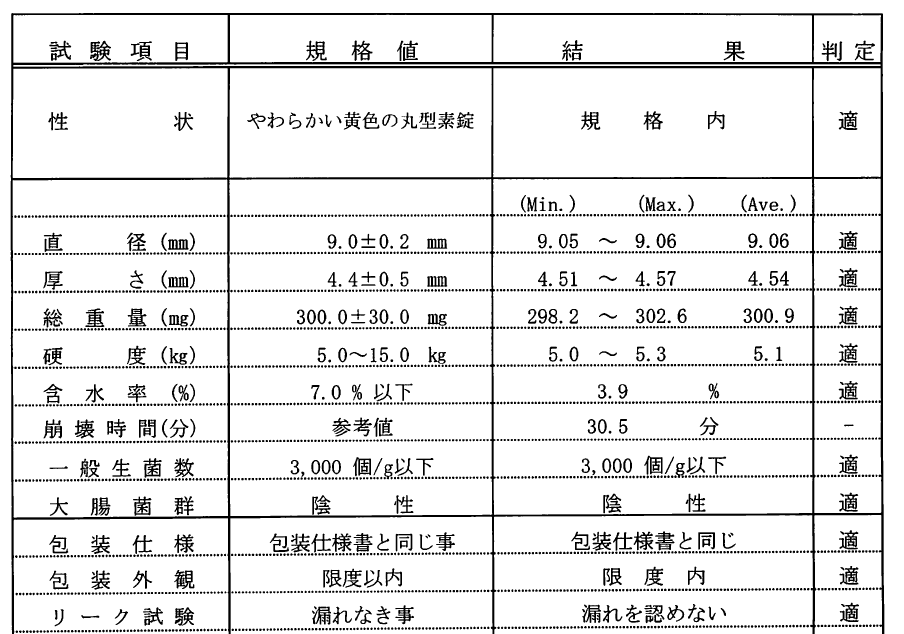 試験項目 規格値 結果 判定
性状 やわらかい黄色の丸型素錠 規格内 適
(Min.) (Max.) (Ave.)
直径(mm) 9.0±0.2 mm 9.05 ～ 9.06 9.06 適
厚さ(mm) 4.4±0.5 mm 4.51 ～ 4.57 4.54 適
総重量(mg) 300.0±30.0 mg 298.2 ～ 302.6 300.9 適
硬度(kg) 5.0～15.0 kg 5.0 ～ 5.3 5.1 適
含水率(%) 7.0 % 以下 3.9 % 適
崩壊時間(分) 参考値 30.5 分 −
一般生菌数 3,000 個/g以下 3,000 個/g以下 適
大腸菌群 陰性 陰性 適
包装仕様 包装仕様書と同じ事 包装仕様書と同じ 適
包装外観 限度以内 限度内 適
リーク試験 漏れなき事 漏れを認めない 適